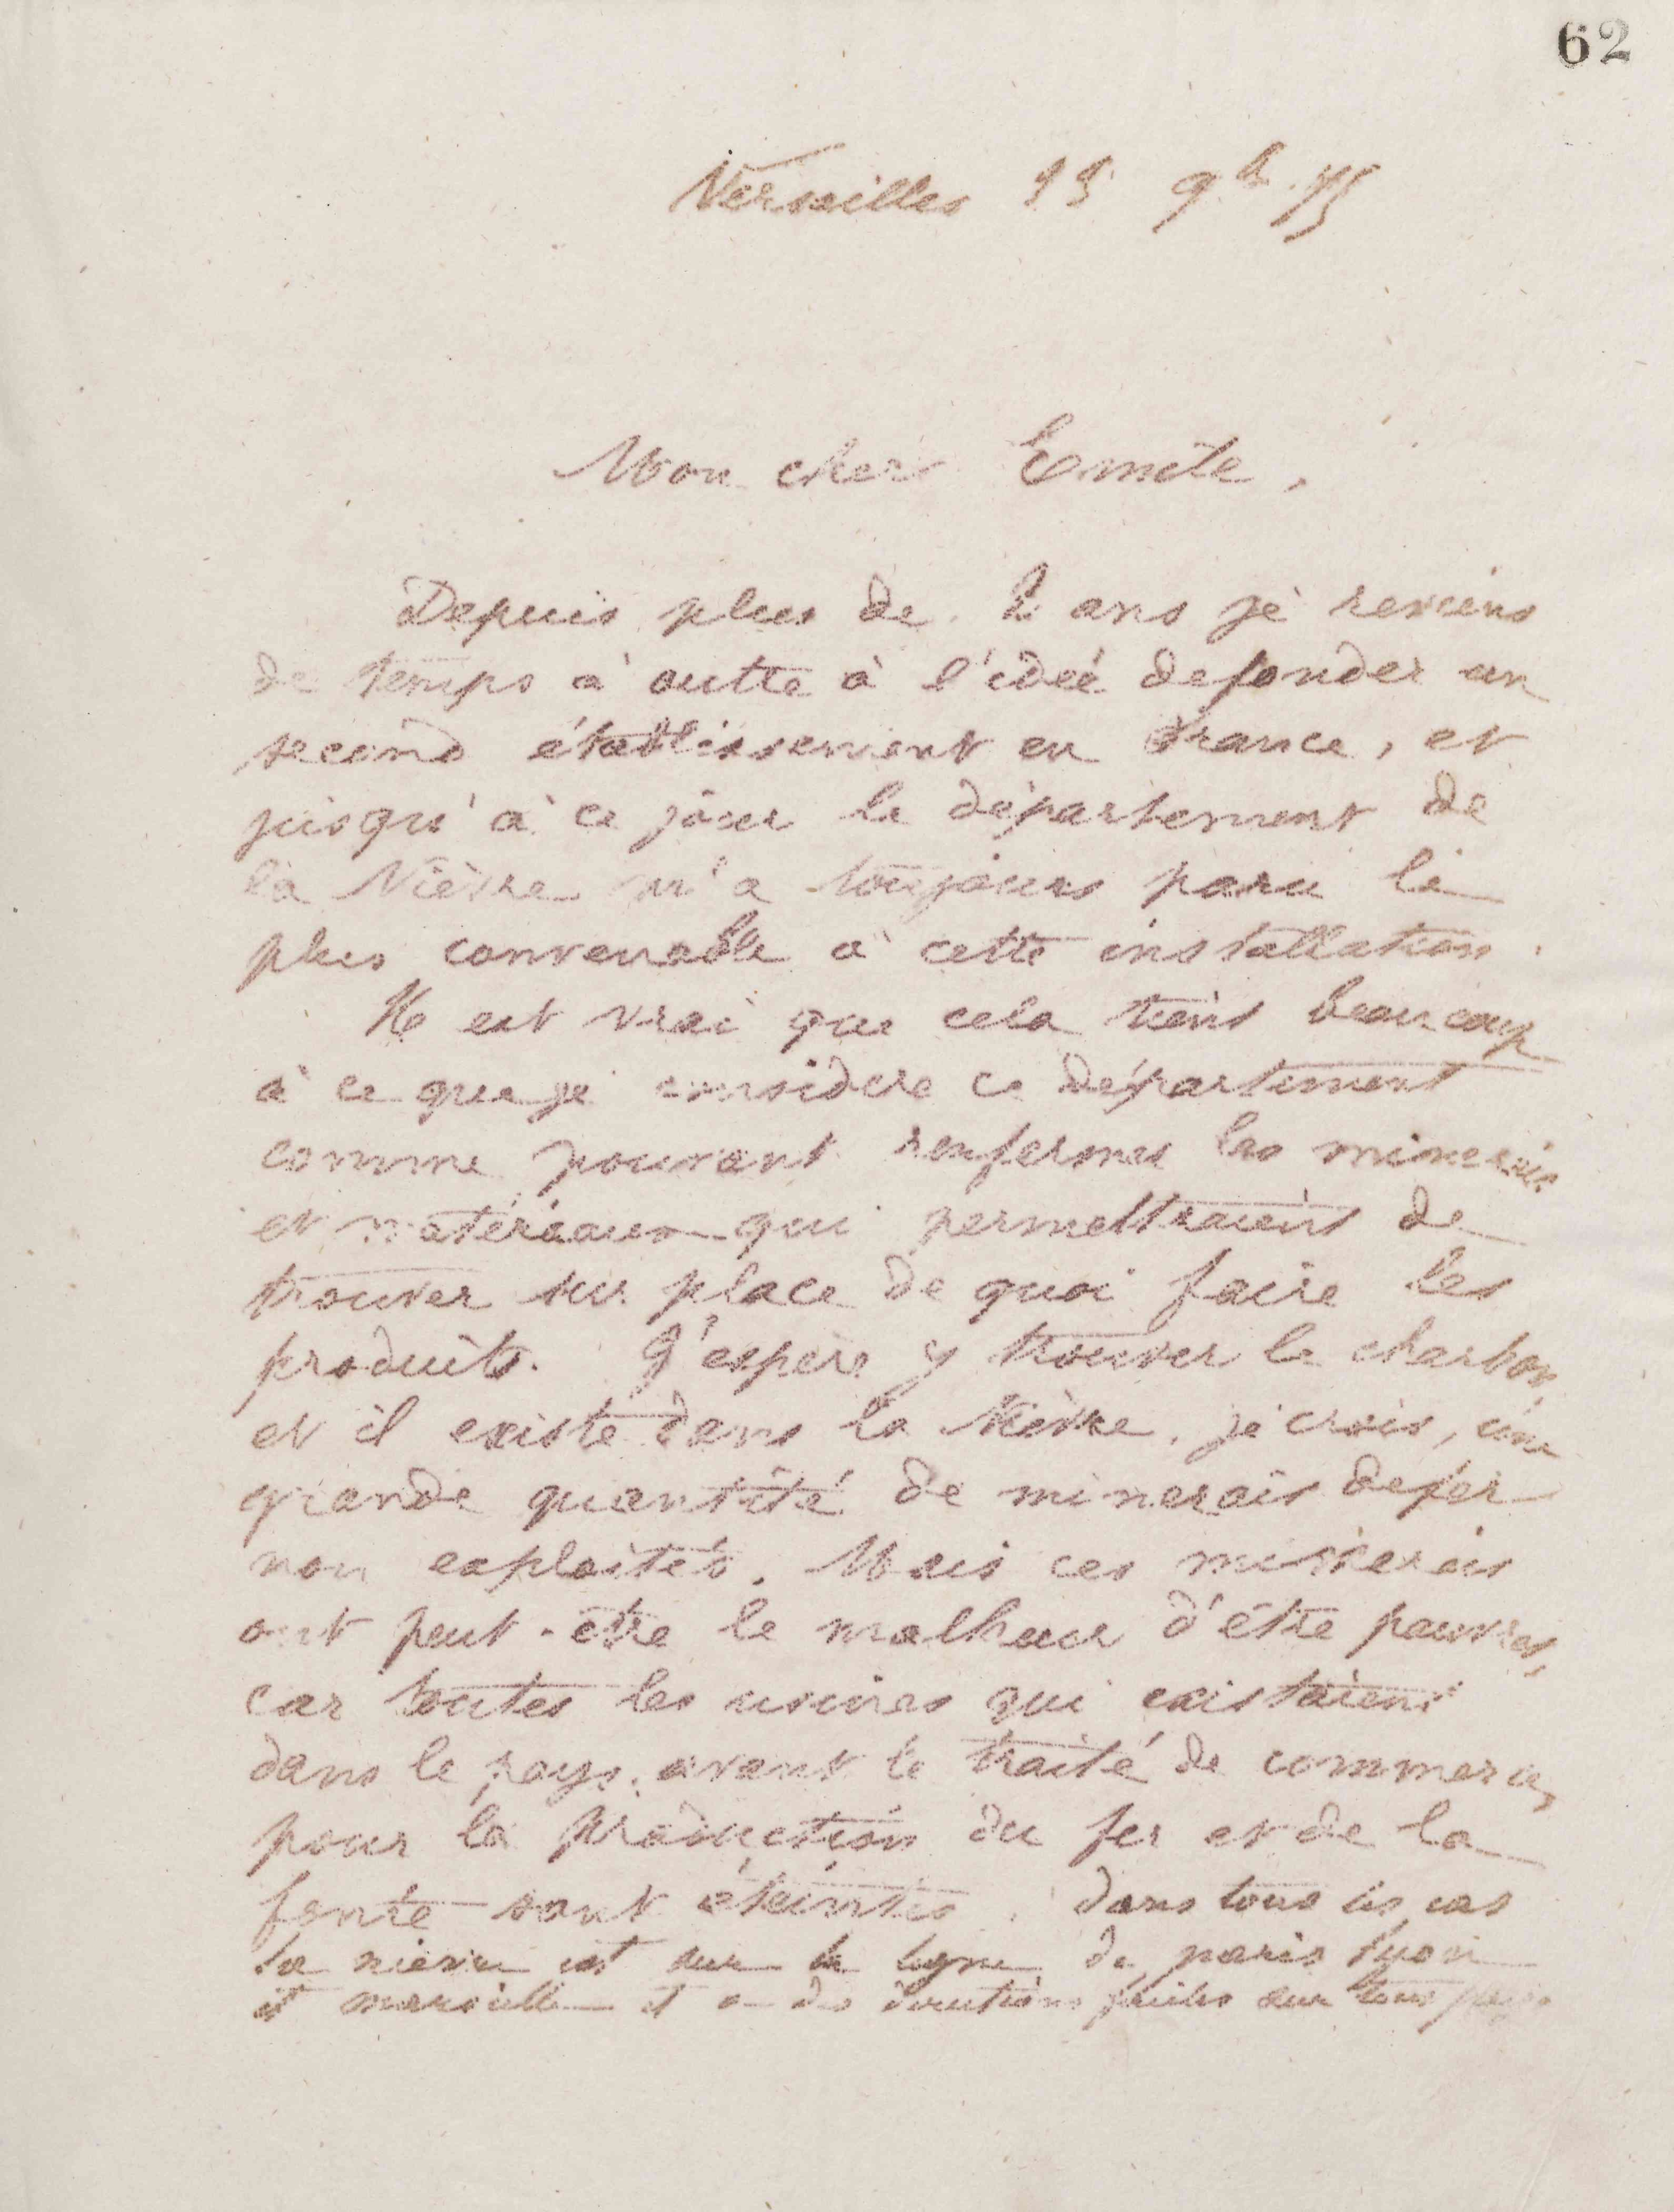 62
Versailles 9bre 75
Mon cher Emile,
Depuis plus de 2 ans je reviens
de temps à autre à l'idée de fonder un
second établissement en France, et
jusqu'à ce jour le département de
la Nièvre m'a toujours paru le
plus convenable à cette installation.
Il est vrai que cela tient beaucoup
à ce que je considère ce département
comme pouvant renfermer les minerais
et matériaux qui permettraient de
trouver sur place de quoi faire les
produits. J'espère y trouver le charbon
et il existe dans la Nièvre, je crois, une
grande quantité de minerais de fer
non exploités. Mais ces minerais
ont peut-être le malheur d'être pauvres,
car toutes les usines qui existaient
dans le pays avant le traité de commerce,
pour la production du fer et de la
fonte sont éteintes. dans tous les cas
la nièvre est sur la ligne de paris lyon
et marseille et a des directions faciles sur tous pays